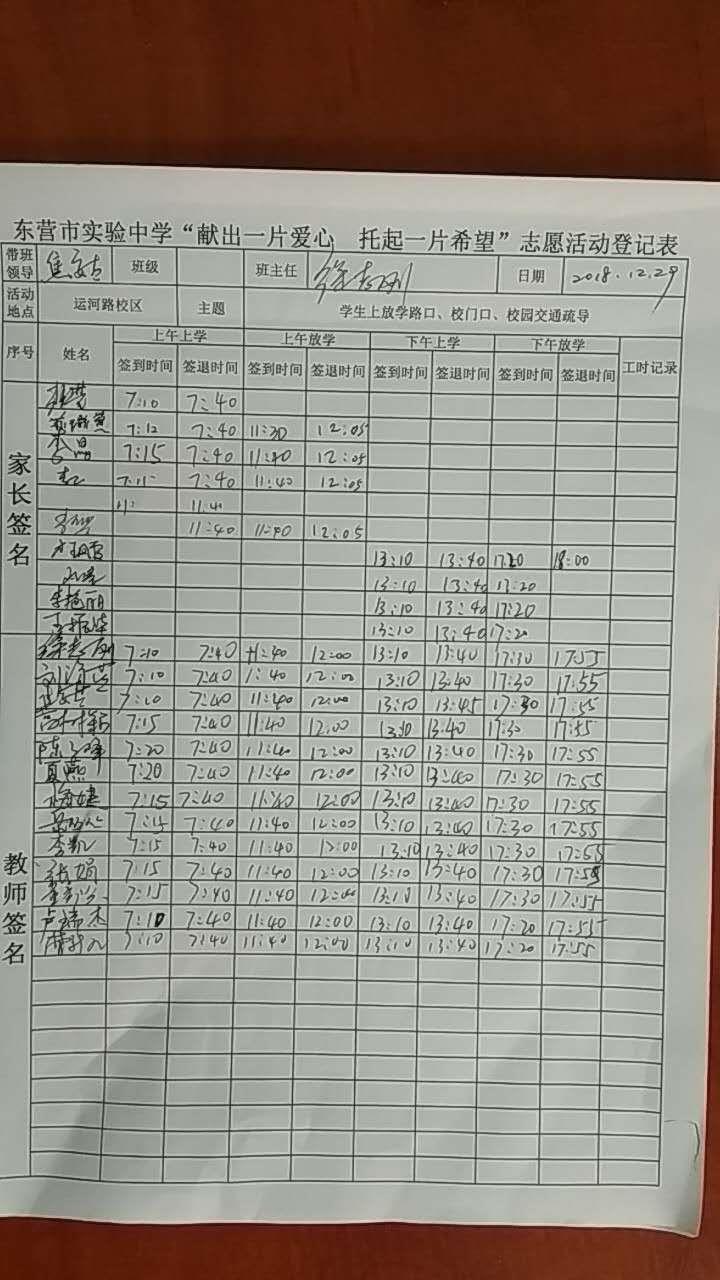 东营市实验中学“献出一片爱心 托起一片希望”志愿活动登记表
带班领导 班级 班主任 徐志刚 日期 2018.12.29
活动地点 运河路校区 主题 学生上放学路口、校门口、校园交通疏导
序号 姓名 上午上学 上午放学 下午上学 下午放学 工时记录
签到时间 签退时间 签到时间 签退时间 签到时间 签退时间 签到时间 签退时间
家长签名
7:10 7:40
7:12 7:40 11:30 12:05
李晶 7:15 7:40 11:40 12:05
7:40 11:40 12:05
11:40 11:40 12:05
13:10 13:40 17:20 18:00
13:10 13:40 17:20
李艳丽 13:10 13:40 17:20
13:10 13:40 17:20
教师签名
徐志刚 7:10 7:40 11:40 12:00 13:10 13:40 17:30 17:55
7:10 7:40 12:00 13:10 13:40 17:30 17:55
7:10 7:40 11:40 12:00 13:10 13:45 17:30 17:55
7:15 7:40 11:40 12:00 13:10 13:40 17:30 17:55
7:20 7:40 11:40 12:00 13:10 13:40 17:30 17:55
夏燕 7:20 7:40 11:40 12:00 13:10 13:40 17:30 17:55
7:15 7:40 11:40 12:00 13:10 13:40 17:30 17:55
7:15 7:40 11:40 12:00 13:10 13:40 17:30 17:55
李凯 7:15 7:40 11:40 12:00 13:10 13:40 17:30 17:55
张娟 7:15 7:40 11:40 12:00 13:10 13:40 17:30 17:55
7:15 7:40 11:40 12:00 13:10 13:40 17:30 17:55
卢瑞杰 7:10 7:40 11:40 12:00 13:10 13:40 17:20 17:55
7:10 7:40 11:40 12:00 13:10 13:40 17:20 17:55